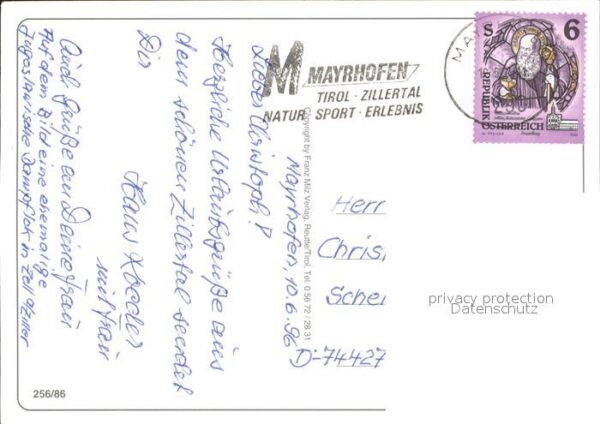 S 6
REPUBLIK
ÖSTERREICH
M MAYRHOFEN
TIROL · ZILLERTAL
NATUR SPORT · ERLEBNIS
Mayrhofen, 10.6.96
Lieber Christoph!
Herzliche Urlaubsgrüße aus
dem schönen Zillertal sendet
Dir
Hans
mit Frau
Auch Grüße an Deine Frau
Auf dem Bild eine ehemalige
Jugoslawische Dampflok in Zell a/Ziller
Copyright by Franz Milz Verlag, Reutte/Tirol, Tel. 0 56 72 / 28 31
Herr
Chris
Scher
D-74427
privacy protection
Datenschutz
256/86